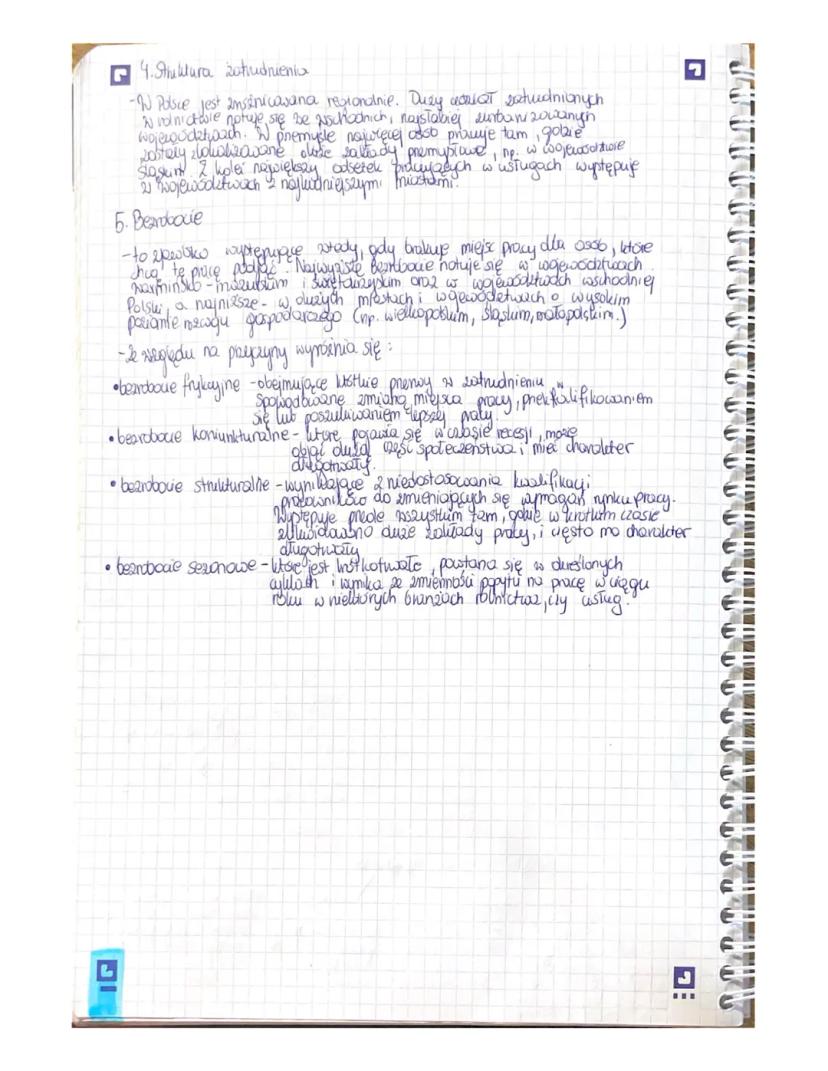 4. Struktura zatrudnienia
- W Polsce jest zróżnicowana regionalnie. Duży udział zatrudnionych
w rolnictwie notuje się we wschodnich, najsłabiej zurbanizowanych
województwach. W przemyśle najwięcej osób pracuje tam, gdzie
zostały zlokalizowane duże zakłady przemysłowe, np. w województwie
śląskim. Z kolei największy odsetek pracujących w usługach występuje
w województwach z najludniejszymi miastami.
5. Bezrobocie
- to zjawisko występujące wtedy, gdy brakuje miejsc pracy dla osób, które
chcą tę pracę podjąć. Najwyższe bezrobocie notuje się w województwach
warmińsko-mazurskim i świętokrzyskim oraz w województwach wschodniej
Polski, a najniższe - w dużych miastach i województwach o wysokim
poziomie rozwoju gospodarczego (np. wielkopolskim, śląskim, małopolskim.)
- Ze względu na przyczyny wyróżnia się :
• bezrobocie frykcyjne - obejmujące krótkie przerwy w zatrudnieniu
spowodowane zmianą miejsca pracy, przekwalifikowaniem
się lub poszukiwaniem lepszej pracy.
• bezrobocie koniunkturalne - które pojawia się w czasie recesji, może
objąć dużą część społeczeństwa i mieć charakter
długotrwały.
• bezrobocie strukturalne - wynikające z niedostosowania kwalifikacji
pracowników do zmieniających się wymagań rynku pracy.
Występuje przede wszystkim tam, gdzie w krótkim czasie
zlikwidowano duże zakłady pracy, i często ma charakter
długotrwały
• bezrobocie sezonowe - które jest krótkotrwałe, powtarza się w określonych
cyklach i wynika ze zmienności popytu na pracę w ciągu
roku w niektórych branżach rolnictwa, czy usług.